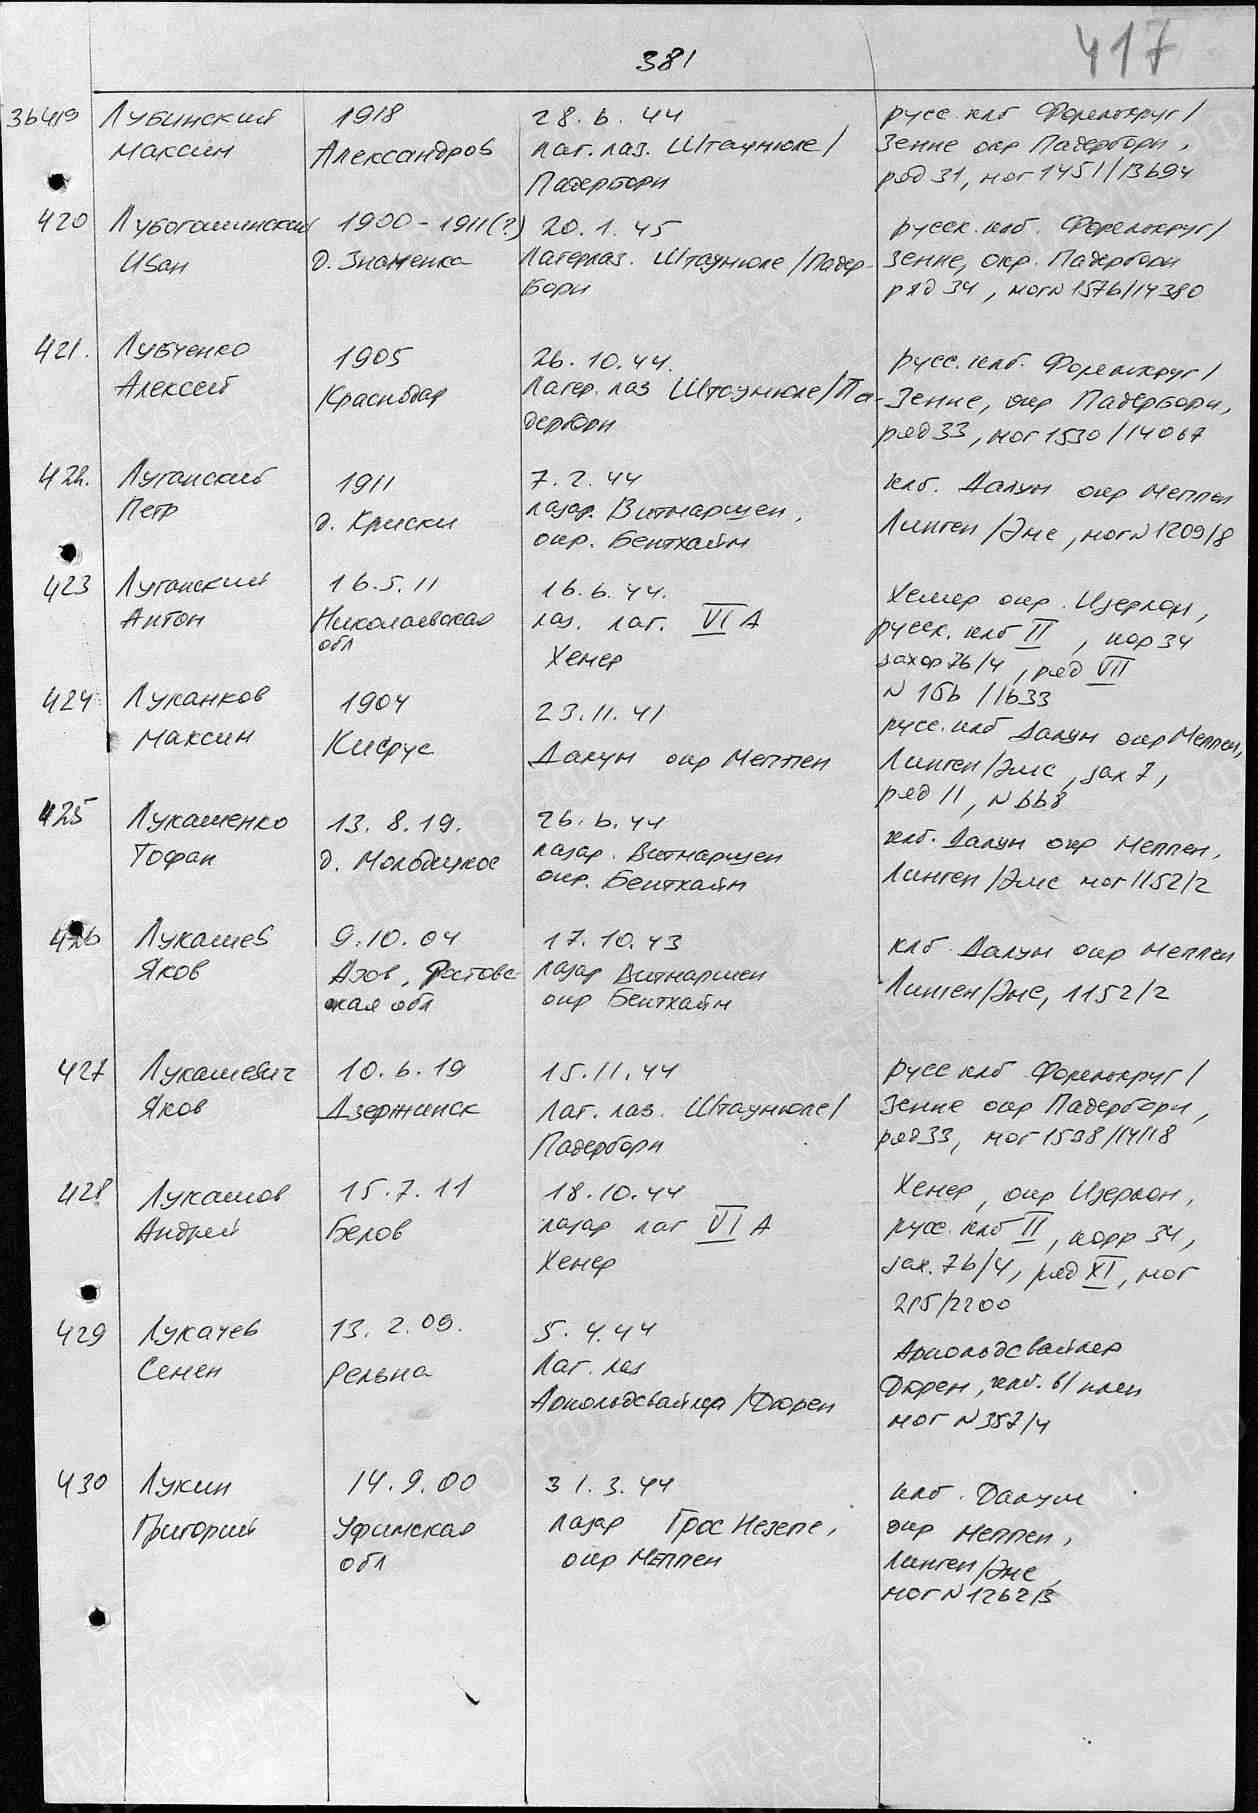 381
417
36419 Лубинский 1918 28.6.44 русс. клб Форелькруг/
Максим Александров лаг. лаз. Штаумюле/ Зенне окр Падерборн,
Падерборн ряд 31, мог 1451/13694
420 Лубогошинский 1900-1911(?) 20.1.45 русск. клб. Форелькруг/
Иван д. Знаменка Лагерлаз. Штаумюле/Падер- Зенне, окр. Падерборн
борн ряд 34, мог N 1576/14380
421. Лубченко 1905 26.10.44. русс. клб. Форелькруг/
Алексей Краснодар Лагер. лаз Штаумюле/Па- Зенне, окр Падерборн,
дерборн ряд 33, мог 1530/14067
422. Луганский 1911 7.2.44 клб. Далум окр Меппен
Петр д. Криски лазар. Витмаршен, Линген/Эмс, мог N 1209/8
окр. Бентхайм
423 Луганский 16.5.11 16.6.44. Хемер окр. Изерлон,
Антон Николаевская лаз. лаг. VI A русск. клб II, кор 34
обл Хемер захор 76/4, ряд VII
N 166/1633
424 Луканков 1904 23.11.41 русс. клб Далум окр Меппен,
Максим Кисрус Далум окр Меппен Линген/Эмс, зах 7,
ряд 11, N 668
425 Лукашенко 13.8.19. 26.6.44 клб. Далум окр Меппен,
Тофан д. Молодицкое лазар. Витмаршен Линген/Эмс мог 1152/2
окр. Бентхайм
426 Лукашев 9.10.04 17.10.43 клб. Далум окр Меппен
Яков Азов, Ростовс- Лазар Витмаршен Линген/Эмс, 1152/2
кая обл окр Бентхайм
427 Лукашевич 10.6.19 15.11.44 русс клб Форелькруг/
Яков Дзержинск Лаг. лаз. Штаумюле/ Зенне окр Падерборн,
Падерборн ряд 33, мог 1538/14118
428 Лукашов 15.7.11 18.10.44 Хемер, окр Изерлон,
Андрей Белов лазар лаг VI A русс. клб II, корр 34,
Хемер зах. 76/4, ряд XI, мог
215/2200
429 Лукачев 13.2.09. 5.4.44 Арнольдсвайлер
Семен Рельна Лаг. лаз Дюрен, клб. в/плен
Арнольдсвайлер/Дюрен мог N 357/4
430 Лукин 14.9.00 31.3.44 клб. Далум
Григорий Уфимская лазар Грос Незепе, окр Меппен,
обл окр Меппен Линген/Эмс,
мог N 1262/3